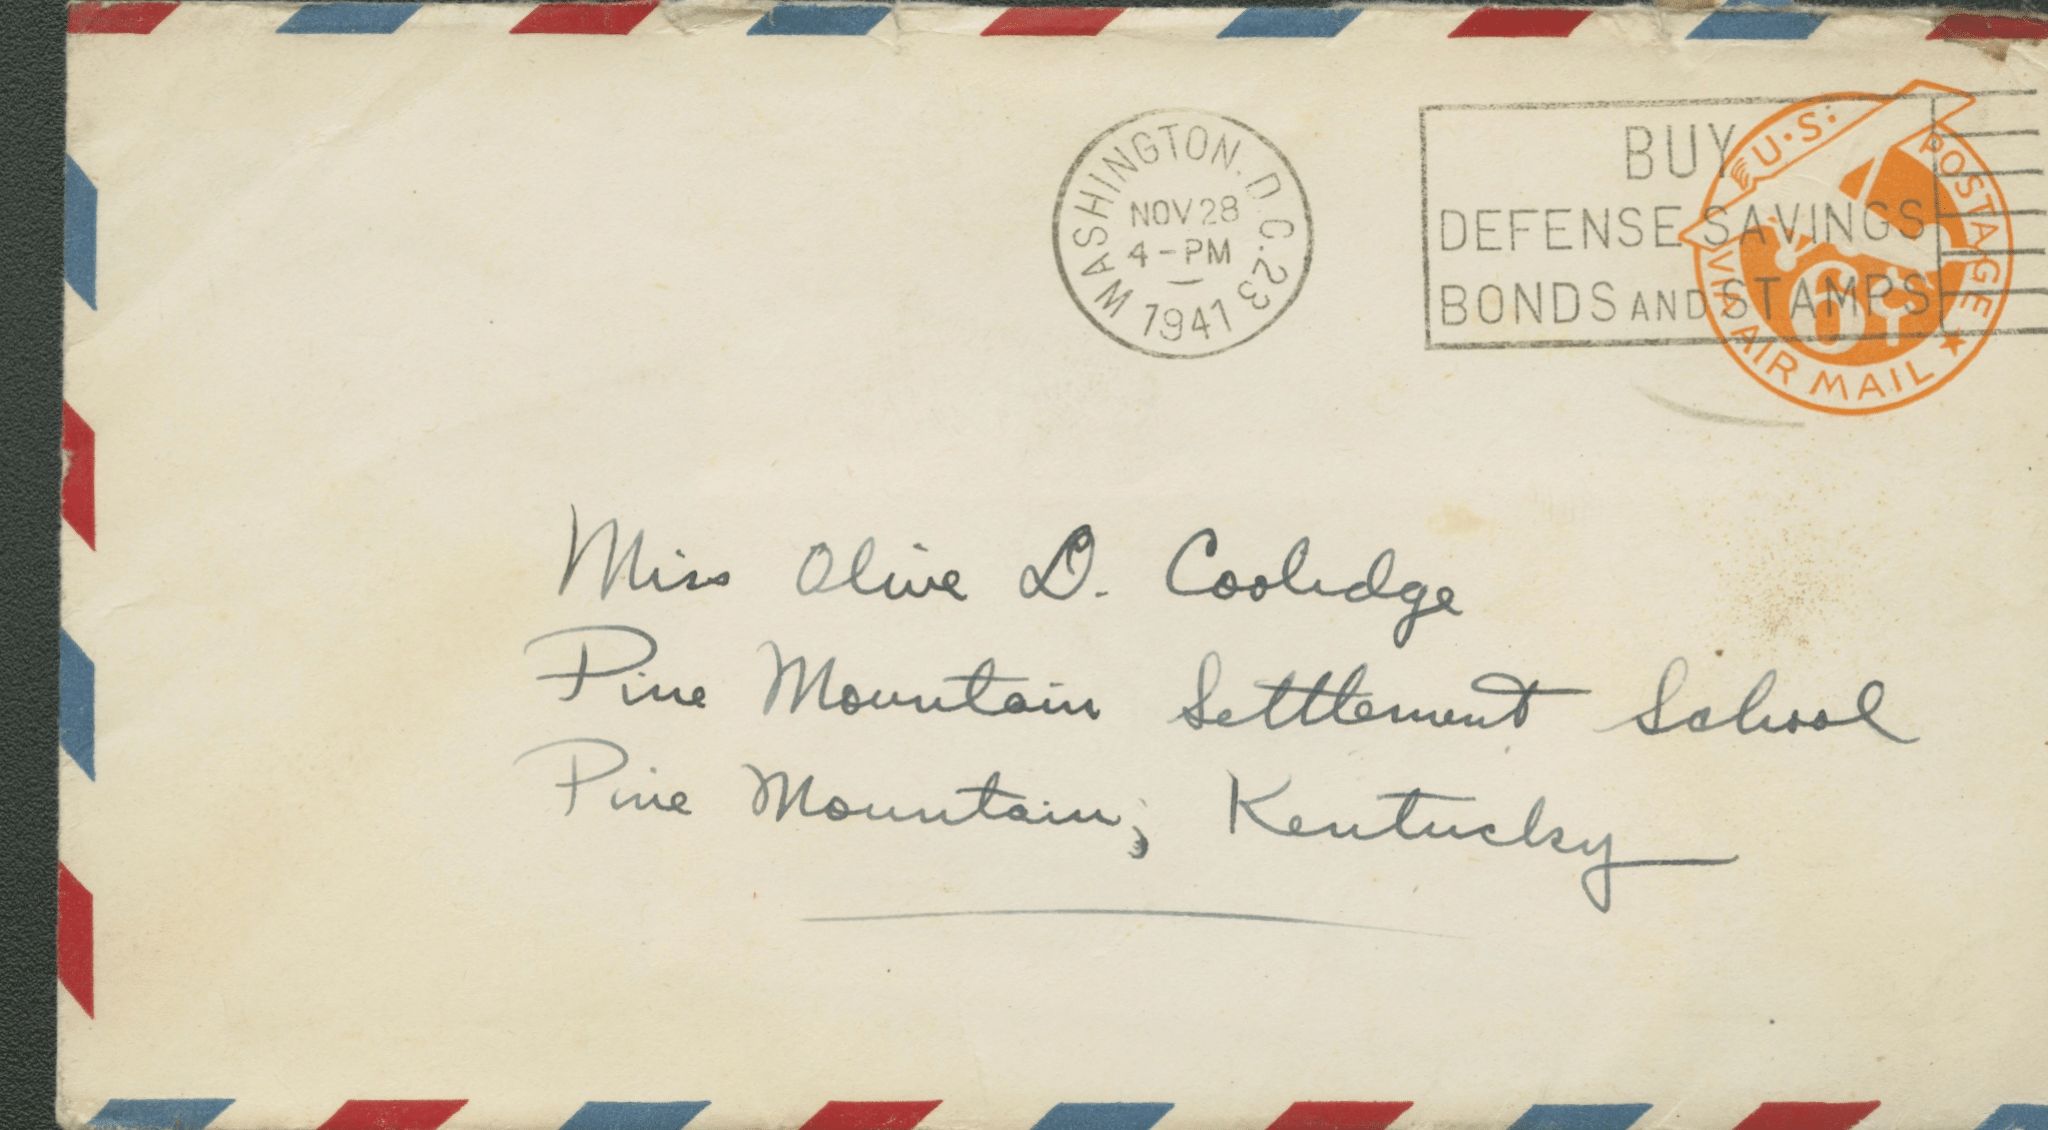 WASHINGTON, D.C. 23
NOV 28
4-PM
1941
BUY
DEFENSE SAVINGS
BONDS AND STAMPS
U.S. POSTAGE
6¢
VIA AIR MAIL
Miss Olive D. Coolidge
Pine Mountain Settlement School
Pine Mountain, Kentucky